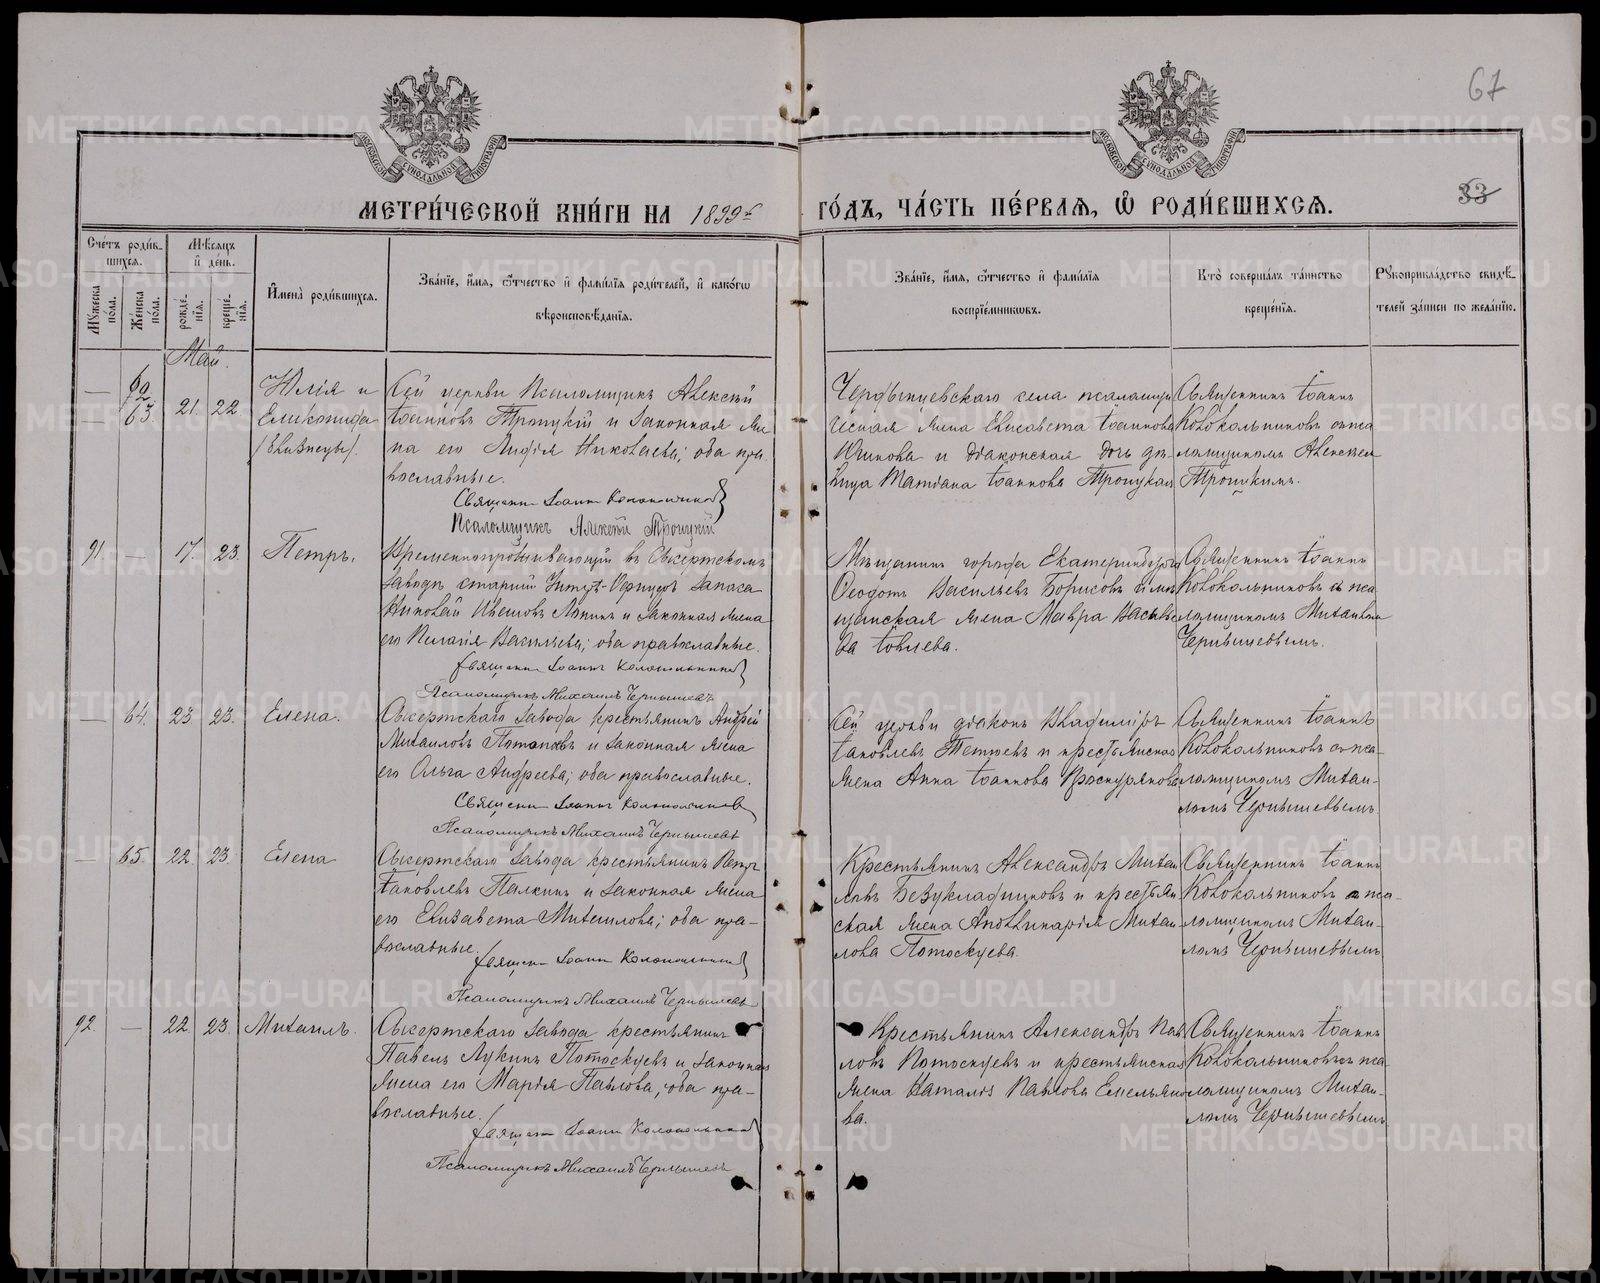 67
33
МОСКОВСКОЙ СУНОДАЛЬНОЙ ТИПОГРАФІИ
МОСКОВСКОЙ СУНОДАЛЬНОЙ ТИПОГРАФІИ
МЕТРИ́ЧЕСКОЙ КНИ́ГИ НА 1899й ГО́ДЪ, ЧА́СТЬ ПЕ́РВАЯ, Ѡ РОДИ́ВШИХСЯ.
Сче́тъ роди́в-
шихся.
Мѣ́сяцъ
и де́нь.
Му́жеска по́ла.
Же́нска по́ла.
рожде́-
нія.
креще́-
нія.
Имена̀ роди́вшихся.
Зва́ніе, и́мя, ѻ́тчество и фами́лія роди́телей, и како́гѡ
вѣроисповѣ́данія.
Зва́ніе, и́мя, ѻ́тчество и фами́лія
воспріе́мникѡвъ.
Кто̀ соверша́лъ та́инство
креще́нія.
Рꙋкоприкла́дство свидѣ́-
телей за́писи по жела́нію.
Май.
—
62
—
63
21.
22.
Юлія и
Еликонида
/близнецы/.
Сей церкви Псаломщикъ Алексѣй
Іоанновъ Троицкій и законная же-
на его Лидія Николаева; оба пра-
вославные.
Священн Іоанн Колокольников
Псаломщикъ Алексѣй Троицкій
Чердынцевскаго села псаломщи
ческая жена Елисавета Іоаннова
и діаконская дочь дѣ-
вица Татіана Іоаннова Троицкая
Священникъ Іоаннъ
Колокольниковъ съ пса
ломщикомъ Алексѣем
Троицкимъ.
91.
—
17.
23.
Петръ.
Временнопроживающій въ Сысертскомъ
заводѣ старшій Унтеръ-Офицеръ запаса
Николай Ивановъ и законная жена
его Пелагія Васильева; оба православные.
Священн Іоанн Колокольников
Псаломщикъ Михаилъ Чернышевъ
Мѣщанинъ города Екатеринбурга
Ѳеодотъ Васильевъ Борисовъ и мѣ
щанская жена Мавра Василье
ва Іовлева.
Священникъ Іоаннъ
Колокольниковъ съ пса
ломщикомъ Михаиломъ
Чернышевымъ.
—
64.
23
23.
Елена.
Сысертскаго завода крестьянинъ Андрей
Михаиловъ Потаповъ и законная жена
его Ольга Андреева; оба православные.
Священн Іоаннъ Колокольников
Псаломщикъ Михаилъ Чернышевъ
Сей церкви діаконъ Владиміръ
Іаковлевъ Тетюевъ и крестьянская
жена Анна Іоаннова Проскурякова
Священникъ Іоаннъ
Колокольниковъ съ пса-
ломщикомъ Михаи-
ломъ Чернышевымъ
—
65.
22.
23.
Елена
Сысертскаго завода крестьянинъ Петръ
Іаковлевъ Палкинъ и законная жена
его Елизавета Михаилова; оба пра-
вославные.
Священн Іоанн Колокольников
Псаломщикъ Михаилъ Чернышевъ
Крестьянинъ Александръ Михаи
ловъ Безукладниковъ и крестьян
ская жена Аполлинарія Михаи-
лова Потоскуева.
Священникъ Іоаннъ
Колокольниковъ съ пса-
ломщикомъ Михаи-
ломъ Чернышевымъ
92.
—
22.
23.
Михаилъ.
Сысертскаго завода крестьянинъ
Павелъ Лукинъ Потоскуевъ и законная
жена его Марія Павлова; оба пра-
вославные.
Священн Іоанн Колокольников
Псаломщикъ Михаилъ Чернышевъ
Крестьянинъ Александръ Пав
ловъ Потоскуевъ и крестьянская
жена Наталія Павлова Емельяно
ва.
Священникъ Іоаннъ
Колокольниковъ съ пса
ломщикомъ Михаи-
ломъ Чернышевымъ
METRIKI.GASO-URAL.RU